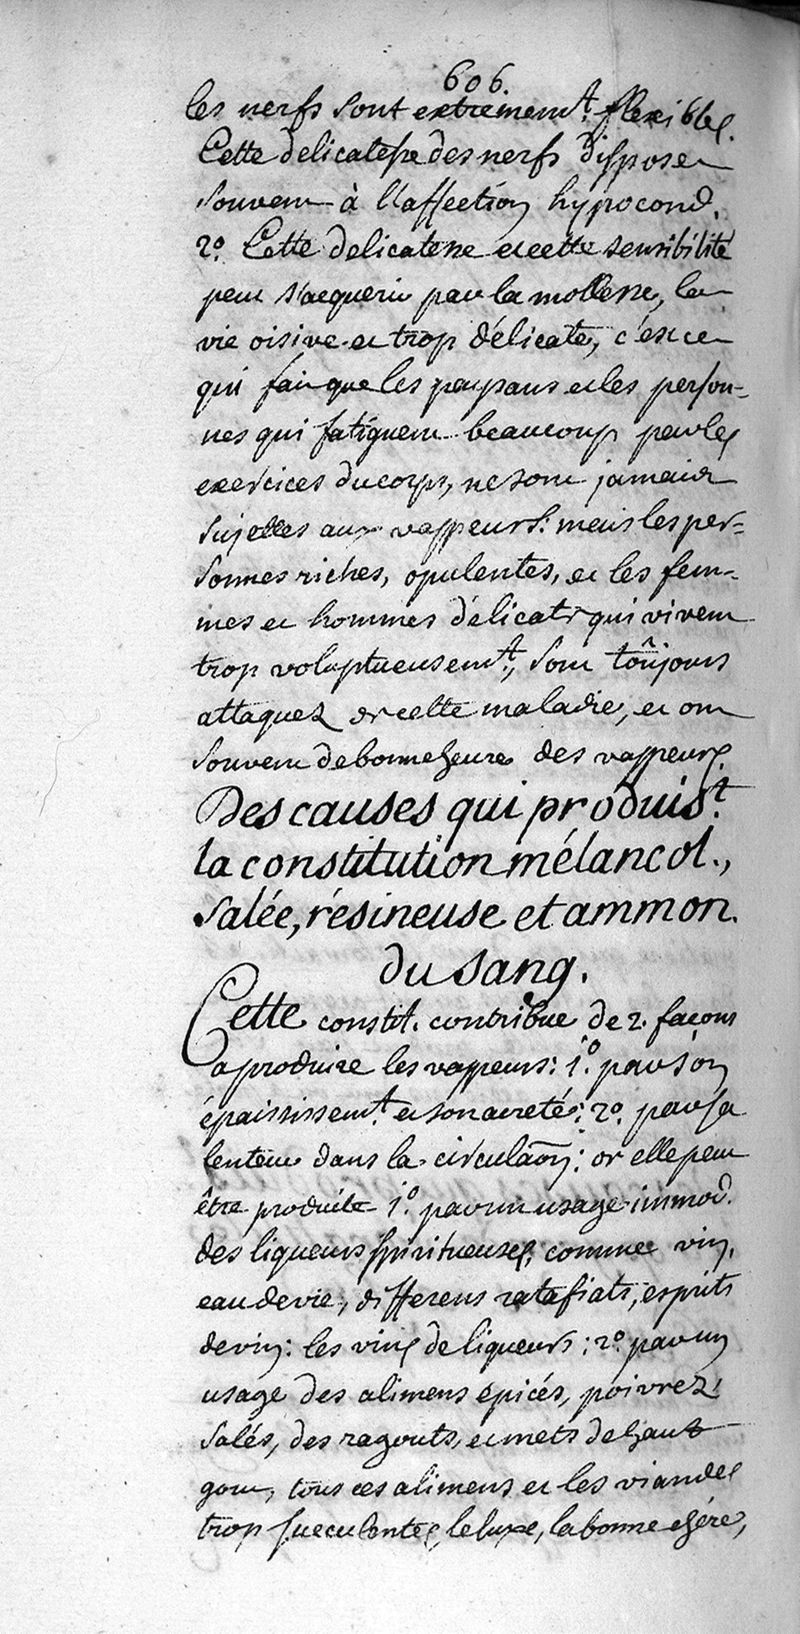 606.
les nerfs sont extrêmem.t flexibles.
Cette delicatesse des nerfs dispose
souvent à l'affection hypocond.
2.o Cette delicatesse et cette sensibilité
peut s'acquerir par la mollesse, la
vie oisive et trop délicate, c'est ce
qui fait que les paysans et les person-
nes qui fatiguent beaucoup par les
exercices du corps, ne sont jamais
sujettes aux vappeurs: mais les per-
sonnes riches, opulentes, et les fem-
mes et hommes délicats qui vivent
trop voluptueusem.t, sont toûjours
attaquez de cette maladie, et ont
souvent de bonne heure des vappeurs.
Des causes qui produis.t
la constitution mélancol.,
salée, résineuse et ammon.
du sang.
Cette constit. contribue de 2. façons
a produire les vappeurs: 1.o par son
épaississem.t et son acreté; 2.o par sa
lenteur dans la circulaõn: or elle peut
être produite 1.o par un usage immod.
des liqueurs spiritueuses, comme vin,
eau de vie, differens ratafiats, esprits
de vin: les vins de liqueurs; 2.o par un
usage des alimens épicés, poivrez,
salés, des ragouts, et mets de haut
gout, tous ces alimens et les viandes
trop succulentes, le luxe, la bonne chére,